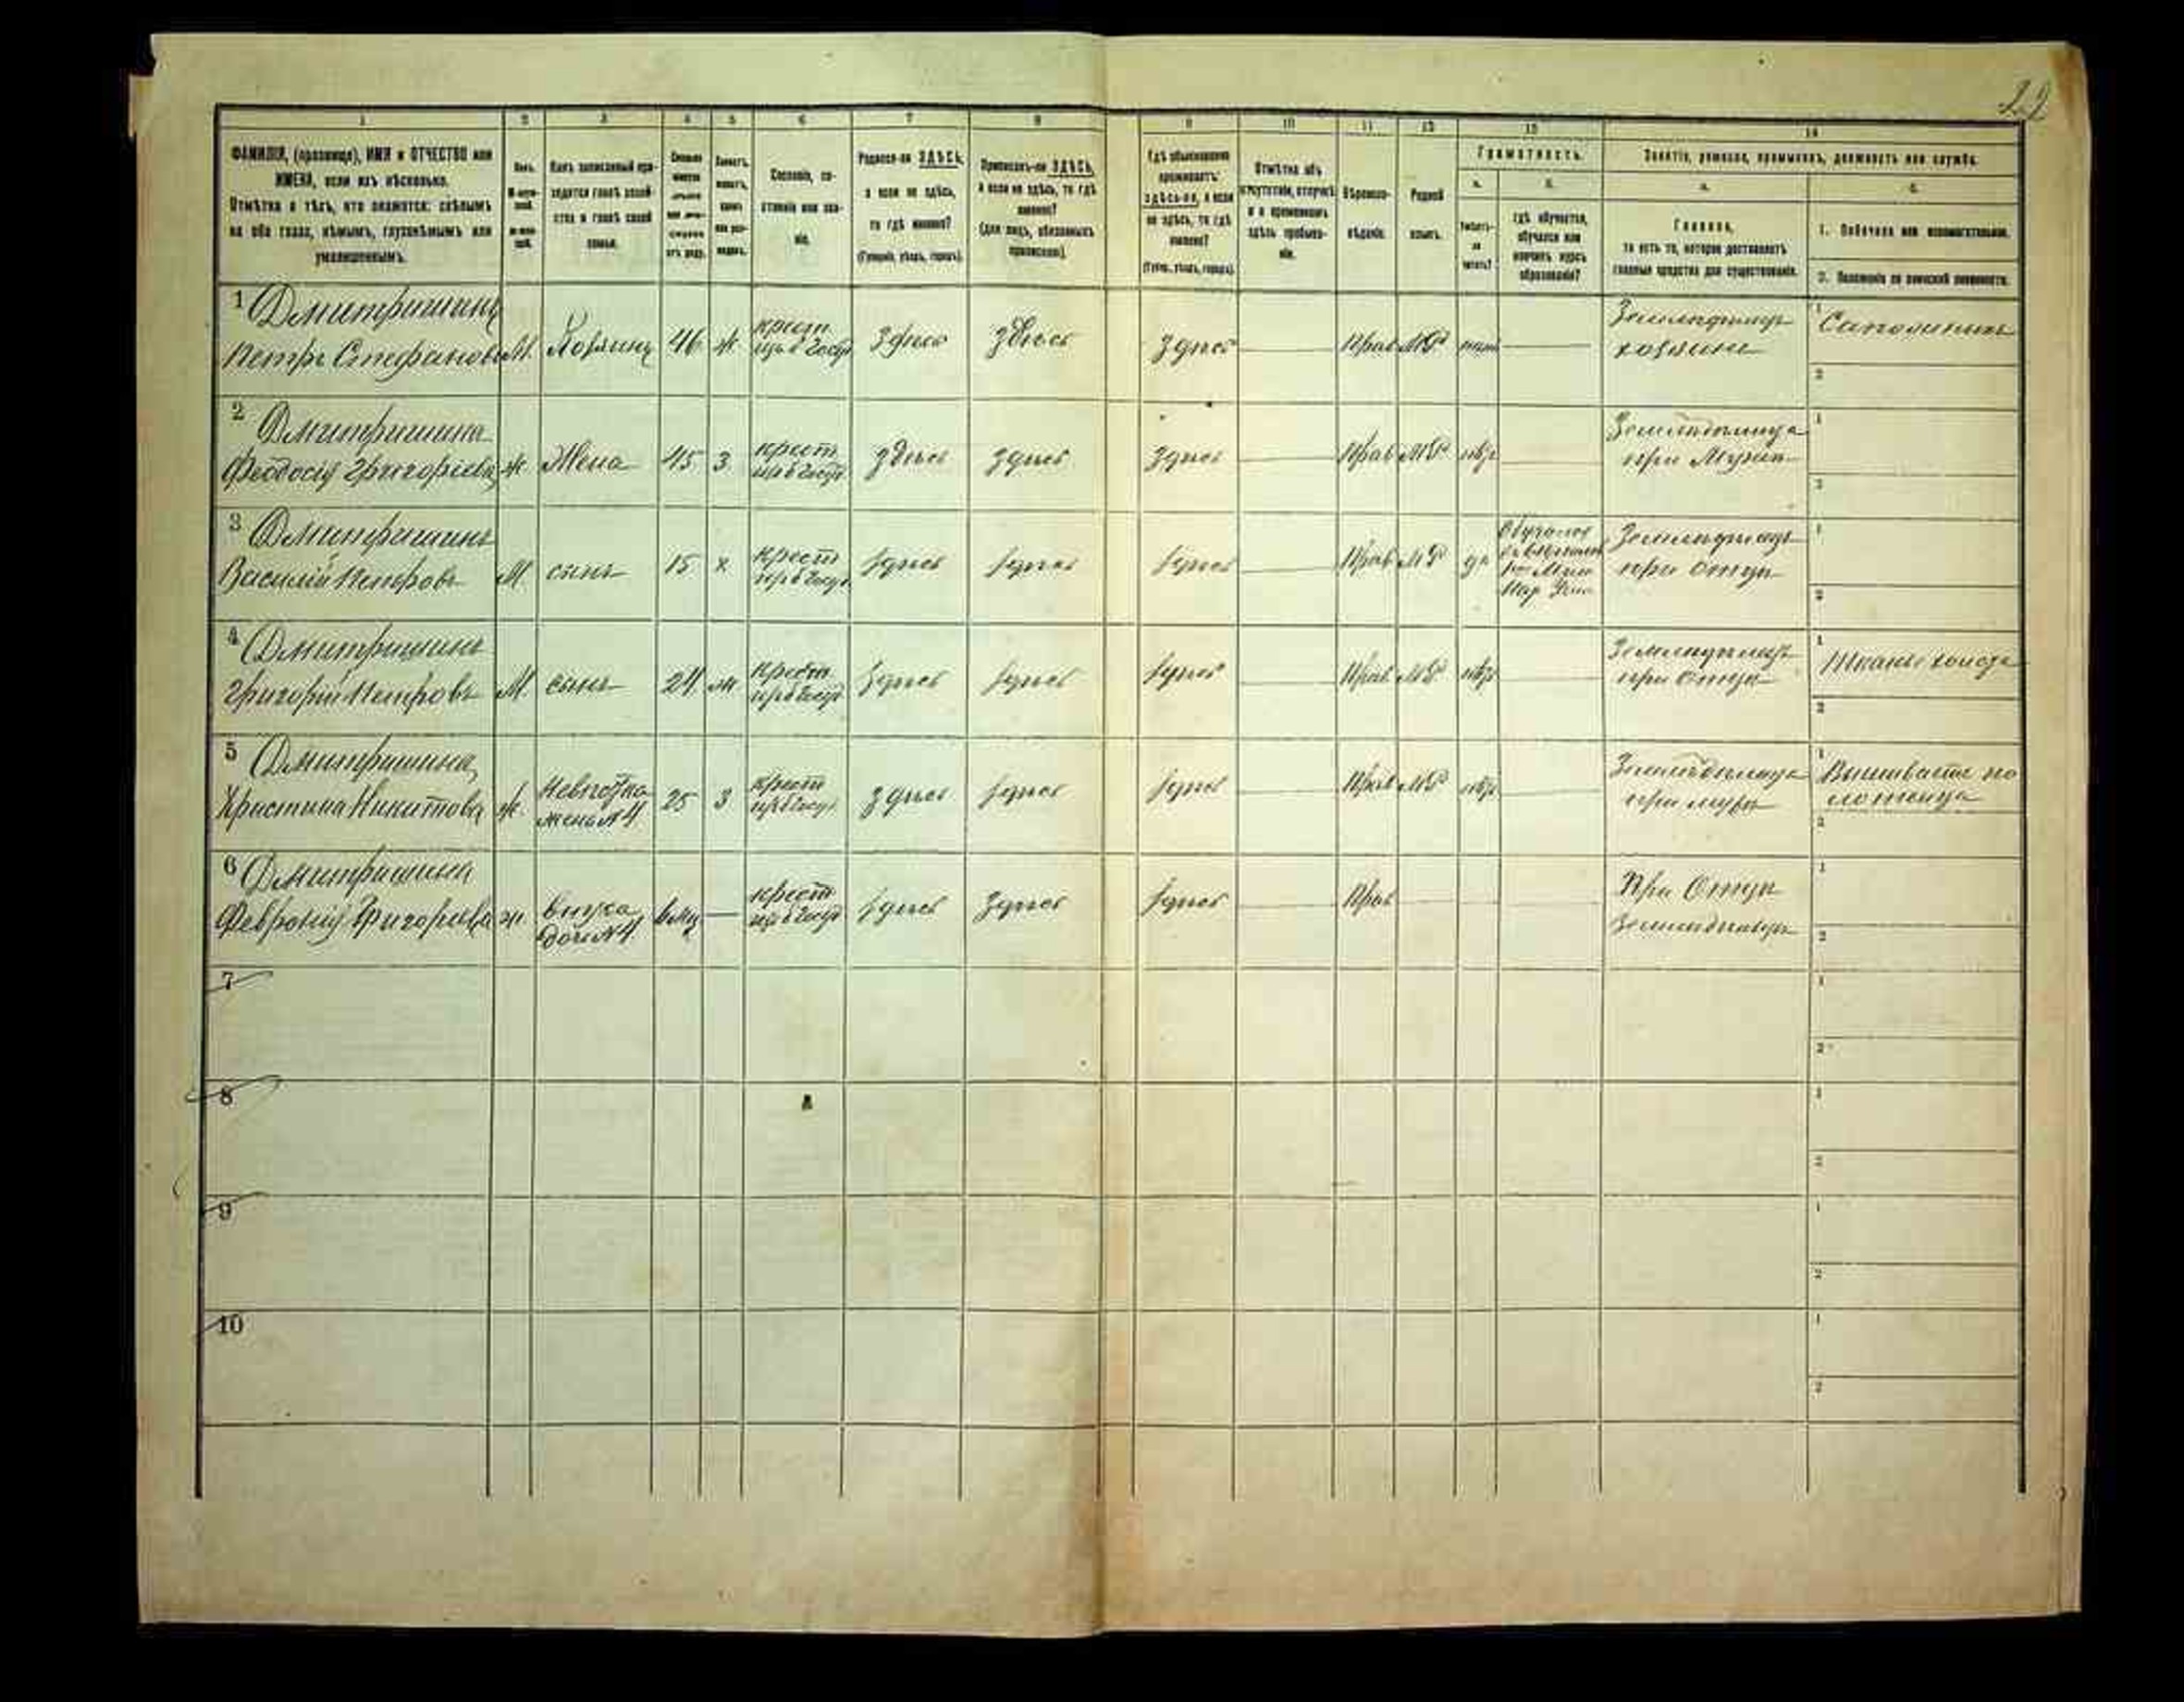 22
1 2 3 4 5 6 7 8 9 10 11 12 13 14
ФАМИЛІЯ, (прозвище), ИМЯ и ОТЧЕСТВО или
ИМЕНА, если ихъ нѣсколько.
Отмѣтка о тѣхъ, кто окажется: слѣпымъ
на оба глаза, нѣмымъ, глухонѣмымъ или
умалишеннымъ.
Полъ.
Какъ записанный при-
ходится главѣ хозяй-
ства и главѣ своей
семьи.
Сословіе, со-
стояніе или зва-
ніе.
Родился-ли ЗДѢСЬ,
а если не здѣсь,
то гдѣ именно?
(Губернія, уѣздъ, городъ).
Приписанъ-ли ЗДѢСЬ,
а если не здѣсь, то гдѣ
именно?
(для лицъ, обязанныхъ
припискою).
Гдѣ обыкновенно
проживаетъ:
здѣсь-ли, а если
не здѣсь, то гдѣ
именно?
(Губер., уѣздъ, городъ).
Отмѣтка объ
отсутствіи, отлучкѣ
и о временномъ
здѣсь пребыва-
ніи.
Вѣроиспо-
вѣданіе.
Родной
языкъ.
Грамотность.
а. б.
Умѣетъ-
ли
читать?
гдѣ обучается,
обучался или
кончилъ курсъ
образованія?
Занятіе, ремесло, промыселъ, должность или служба.
а. б.
Главное,
то есть то, которое доставляетъ
главныя средства для существованія.
1. Побочное или вспомогательное.
2. Положеніе по воинской повинности.
1 Дмитришинъ
Петръ Стефановъ М. Хозяинъ 46 ж крест здѣсь здѣсь здѣсь Прав МР
Земледѣлецъ
хозяинъ
1
2
2 Дмитришина
Феодосія Григорьева ж Жена 45 з крест здѣсь здѣсь здѣсь Прав МР
Земледѣлица
при Мужѣ
1
2
3 Дмитришинъ
Василій Петровъ М. сынъ 15 х крест здѣсь здѣсь здѣсь Прав МР да
Земледѣлецъ
при Отцѣ
1
2
4 Дмитришинъ
Григорій Петровъ М сынъ 24 ж крест здѣсь здѣсь здѣсь Прав МР
Земледѣлецъ
при Отцѣ
1
2
5 Дмитришина
Христина Никитова ж. Невѣстка
жена №4 25 з крест здѣсь здѣсь здѣсь Прав МР
Земледѣлица
при мужѣ
1
2
6 Дмитришина
Февронія Григорьева ж. внучка
дочь №4 крест здѣсь здѣсь здѣсь Прав
При Отцѣ
Земледѣльцѣ
1
2
7 1
2
8 1
2
9 1
2
10 1
2